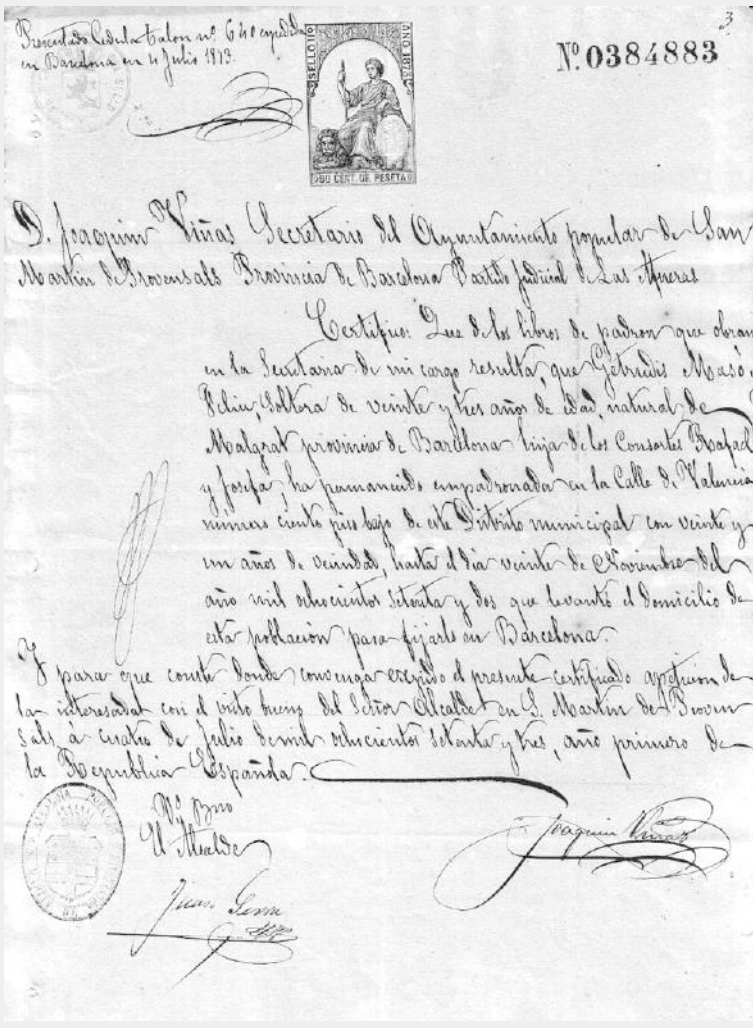 3
Presentada Cedula talon nº 640 espedida
en Barcelona en 4 Julio 1873.
SELLO 11º
AÑO 1873
Nº 0384883
50 CENT. DE PESETA
D. Joaquim Viñas Secretario del Ayuntamiento popular de San
Martin de Provensals Provincia de Barcelona Partido judicial de Las Afueras
Certifico: Que de los libros de padron que obran
en la Secretaria de mi cargo resulta, que Getrudis Masó
Feliu, Soltera de veinte y tres años de edad, natural de
Malgrat provincia de Barcelona hija de los Consortes Rafael
y Josefa, ha permanecido empadronada en la Calle de Valencia
numero ciento piso bajo de este Distrito municipal con veinte y
un años de vecindad, hasta el dia veinte de Noviembre del
año mil ochocientos setenta y dos que levantó el domicilio de
esta poblacion para fijarlo en Barcelona.
Y para que conste donde convenga expido el presente certificado apeticion de
la interesada con el visto bueno del Señor Alcalde en S. Martin de Proven
sals a cuatro de Julio de mil ochocientos setenta y tres, año primero de
la Republica Española.
Vº Bno
El Alcalde
Joaquim Viñas
Juan